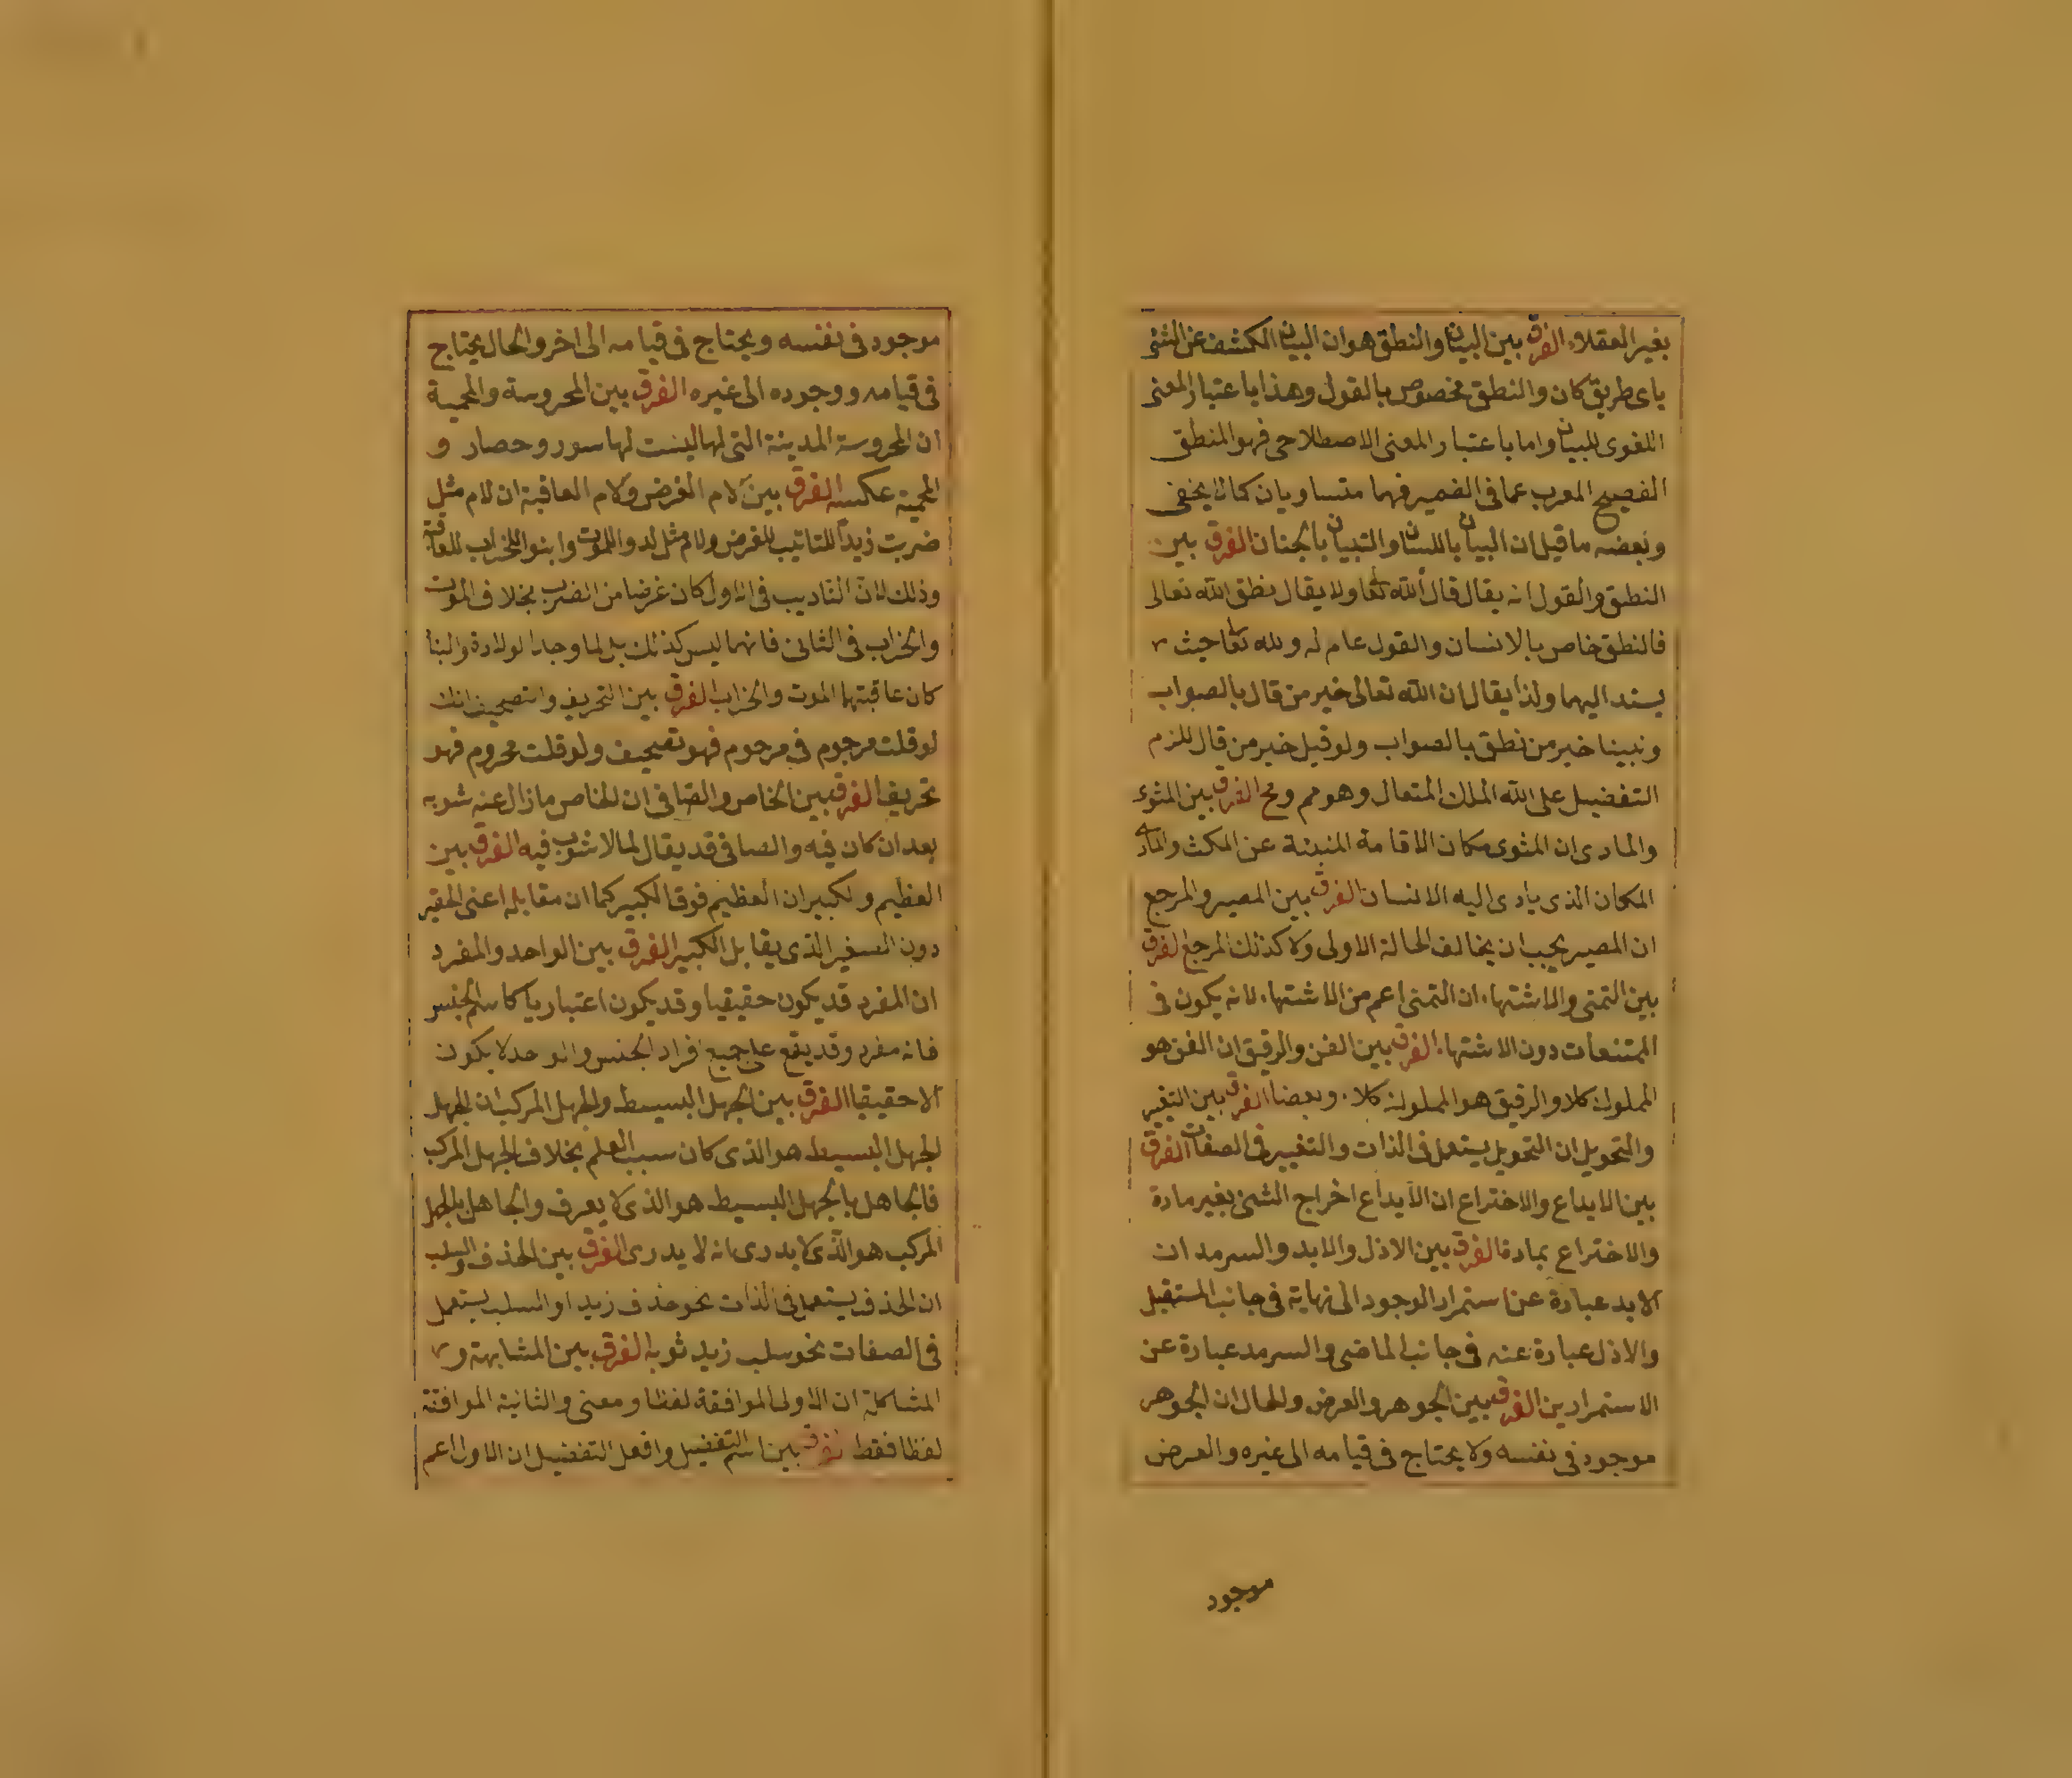 بغير العقلاء الفرق بين البيان والنطق هو ان البيان الكشف عن الشئ
باى طريق كان والنطق مخصوص بالقول وهذا باعتبار المعنى
اللغوى للبيان واما باعتبار المعنى الاصطلاحى فهو المنطق
الفصيح المعرب عما فى الضمير فهما متساويان كما لا يخفى
وبعضه ما قيل ان البيان باللسان والتبيان بالجنان الفرق بين
النطق والقول انه يقال قال الله تعا ولا يقال نطق الله تعالى
فالنطق خاص بالانسان والقول عام له ولله تعا حيث
يسند اليهما ولذا يقال ان الله تعالى خير من قال بالصواب
ونبينا خير من نطق بالصواب ولو قيل خير من قال للزم
التفضيل على الله الملك المتعال وهو مم ومح الفرق بين المثوى
والمادى ان المثوى مكان الاقامة المنبئة عن المكث والمادى
المكان الذى يادى اليه الانسان الفرق بين المصير والمرجع
ان المصير يجب ان يخالف الحالة الاولى ولا كذلك المرجع الفرق
بين التمنى والاشتهاء ان التمنى اعم من الاشتهاء لانه يكون فى
الممتنعات دون الاشتهاء الفرق بين القن والرقيق ان القن هو
المملوك كلا والرقيق هو المملوك كلا وبعضا الفرق بين التغيير
والتحويل ان التحويل يستعمل فى الذات والتغيير فى الصفات الفرق
بين الابداع والاختراع ان الابداع اخراج الشئ بغير مادة
والاختراع بمادة الفرق بين الازل والابد والسرمد ان
الابد عبارة عن استمرار الوجود الى نهاية فى جانب المستقبل
والازل عبارة عنه فى جانب الماضى والسرمد عبارة عن
الاستمرارين الفرق بين الجوهر والعرض والحال ان الجوهر
موجود فى نفسه ولا يحتاج فى قيامه الى غيره والعرض
موجود
موجود فى نفسه ويحتاج فى قيامه الى اخر والحال يحتاج
فى قيامه ووجوده الى غيره الفرق بين المحروسة والمحمية
ان المحروسة المدينة التى لها ليست لها سور وحصار و
المحمية عكسه الفرق بين لام الغرض ولام العاقبة ان لام مثل
ضربت زيدا للتاديب للغرض ولام مثل لدوا للموت وابنوا للخراب للعاقبة
وذلك لان التاديب فى الاول كان غرضا من الضرب بخلاف الموت
والخراب فى الثانى فانهما ليس كذلك بل لما وجد الولادة والبنا
كان عاقبتهما الموت والخراب الفرق بين التحريف والتصحيف انك
لو قلت مرجوم فى مرحوم فهو تصحيف ولو قلت محروم فهو
تحريف الفرق بين الخاص والصافى ان الخاص ما زال عنه شوبه
بعد ان كان فيه والصافى قد يقال لما لا شوب فيه الفرق بين
العظيم والكبير ان العظيم فوق الكبير كما ان مقابله اعنى الحقير
دون الصغير الذى يقابل الكبير الفرق بين الواحد والمفرد
ان المفرد قد يكون حقيقيا وقد يكون اعتباريا كاسم الجنس
فانه مفرد وقد يقع على جميع افراد الجنس والواحد لا يكون
الا حقيقيا الفرق بين الجهل البسيط والجهل المركب ان الجهل
الجهل البسيط هو الذى كان سبب العلم بخلاف الجهل المركب
فالجاهل بالجهل البسيط هو الذى لا يعرف والجاهل بالجهل
المركب هو الذى لا يدرى انه لا يدرى الفرق بين الحذف والسلب
ان الحذف يستعمل فى الذات نحو حذف زيدا والسلب يستعمل
فى الصفات نحو سلب زيد ثوبه الفرق بين المشابهة و
المشاكلة ان الاولى الموافقة لفظا ومعنى والثانية الموافقة
لفظا فقط الفرق بين اسم التفضيل وافعل التفضيل ان الاول اعم